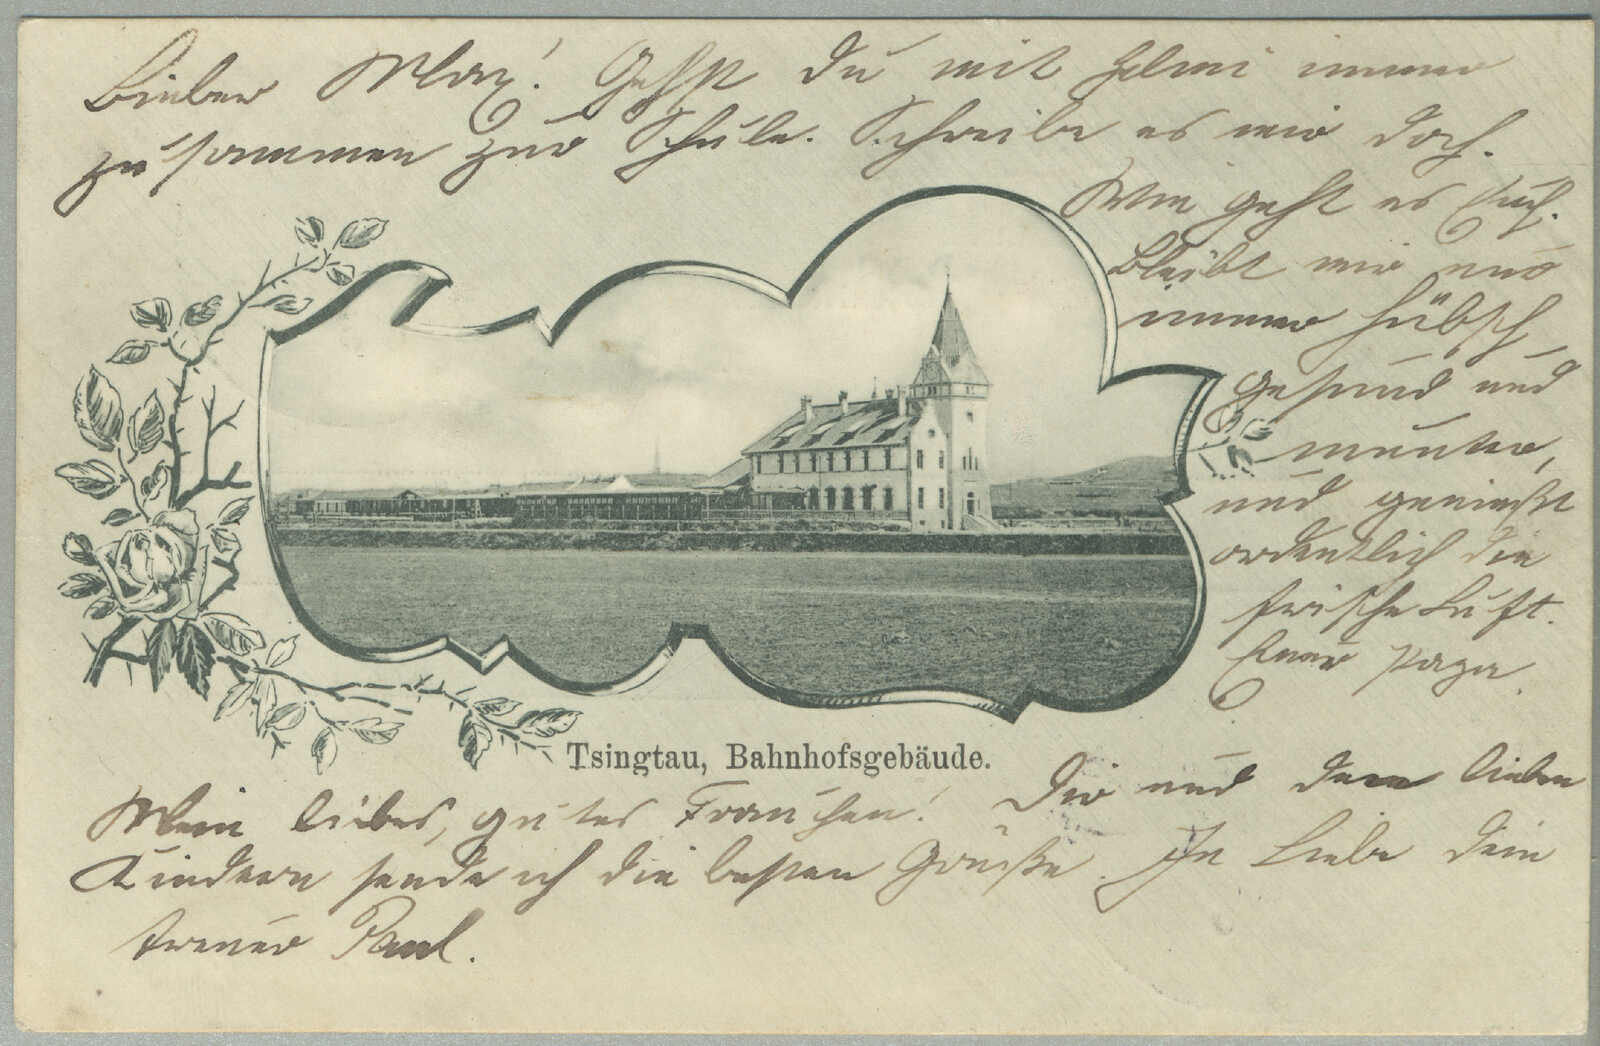 Lieber Max! Gehst Du mit Helmi immer
zusammen zur Schule. Schreibe es mir doch.
Wie geht es Euch.
Bleibt mir nur
immer hübsch
gesund und
munter,
und genießt
ordentlich die
frische Luft.
Euer Papa.
Tsingtau, Bahnhofsgebäude.
Mein liebes, gutes Frauchen! Dir und den lieben
Kindern sende ich die besten Grüße. In Liebe dein
treuer Paul.